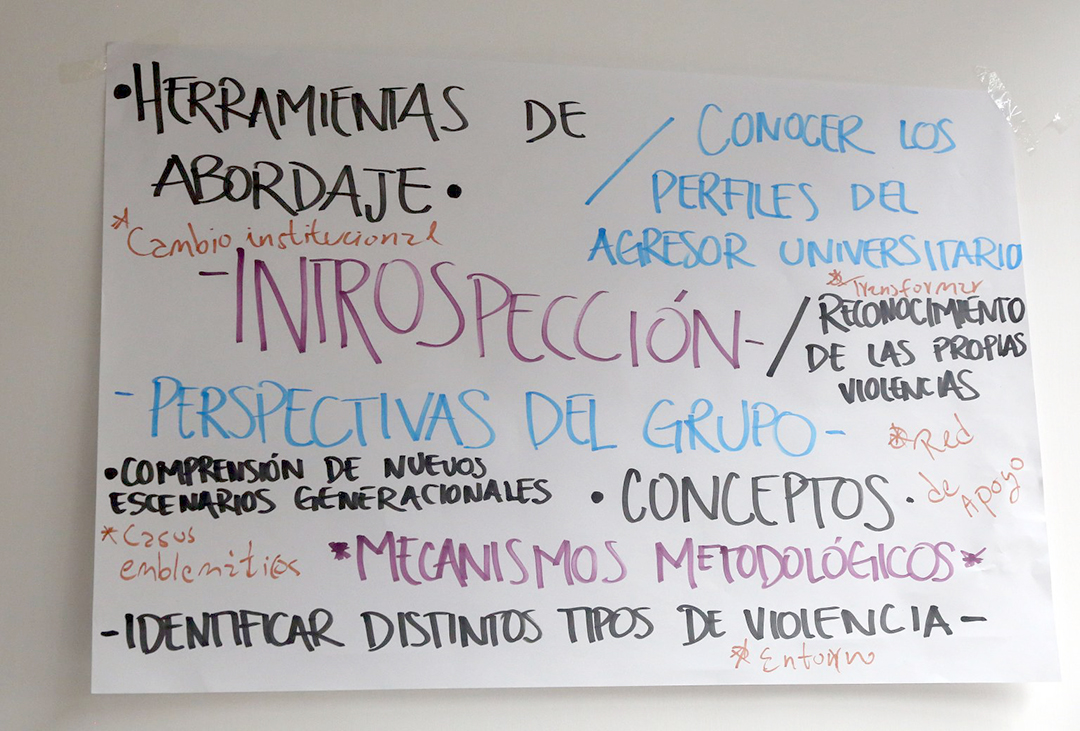 •HERRAMIENTAS DE
ABORDAJE•
/ CONOCER LOS
PERFILES DEL
AGRESOR UNIVERSITARIO
* Cambio institucional
-INTROSPECCIÓN-
* Transformar
/ RECONOCIMIENTO
DE LAS PROPIAS
VIOLENCIAS
- PERSPECTIVAS DEL GRUPO-
* Red
de
Apoyo
•COMPRENSIÓN DE NUEVOS
ESCENARIOS GENERACIONALES
• CONCEPTOS.
* Casos
emblemáticos
*MECANISMOS METODOLÓGICOS*
-IDENTIFICAR DISTINTOS TIPOS DE VIOLENCIA-
* Entorno